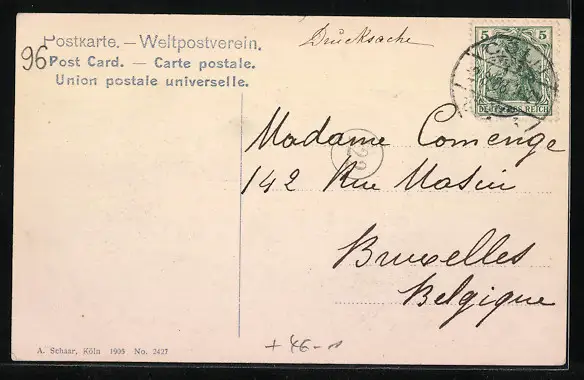 Postkarte. — Weltpostverein.
Post Card. — Carte postale.
Union postale universelle.
96
Drucksache
5 5
DEUTSCHES REICH
Madame Comenge
142 Rue
22
Bruxelles
Belgique
+ 46-
A. Schaar, Köln 1905 No. 2427